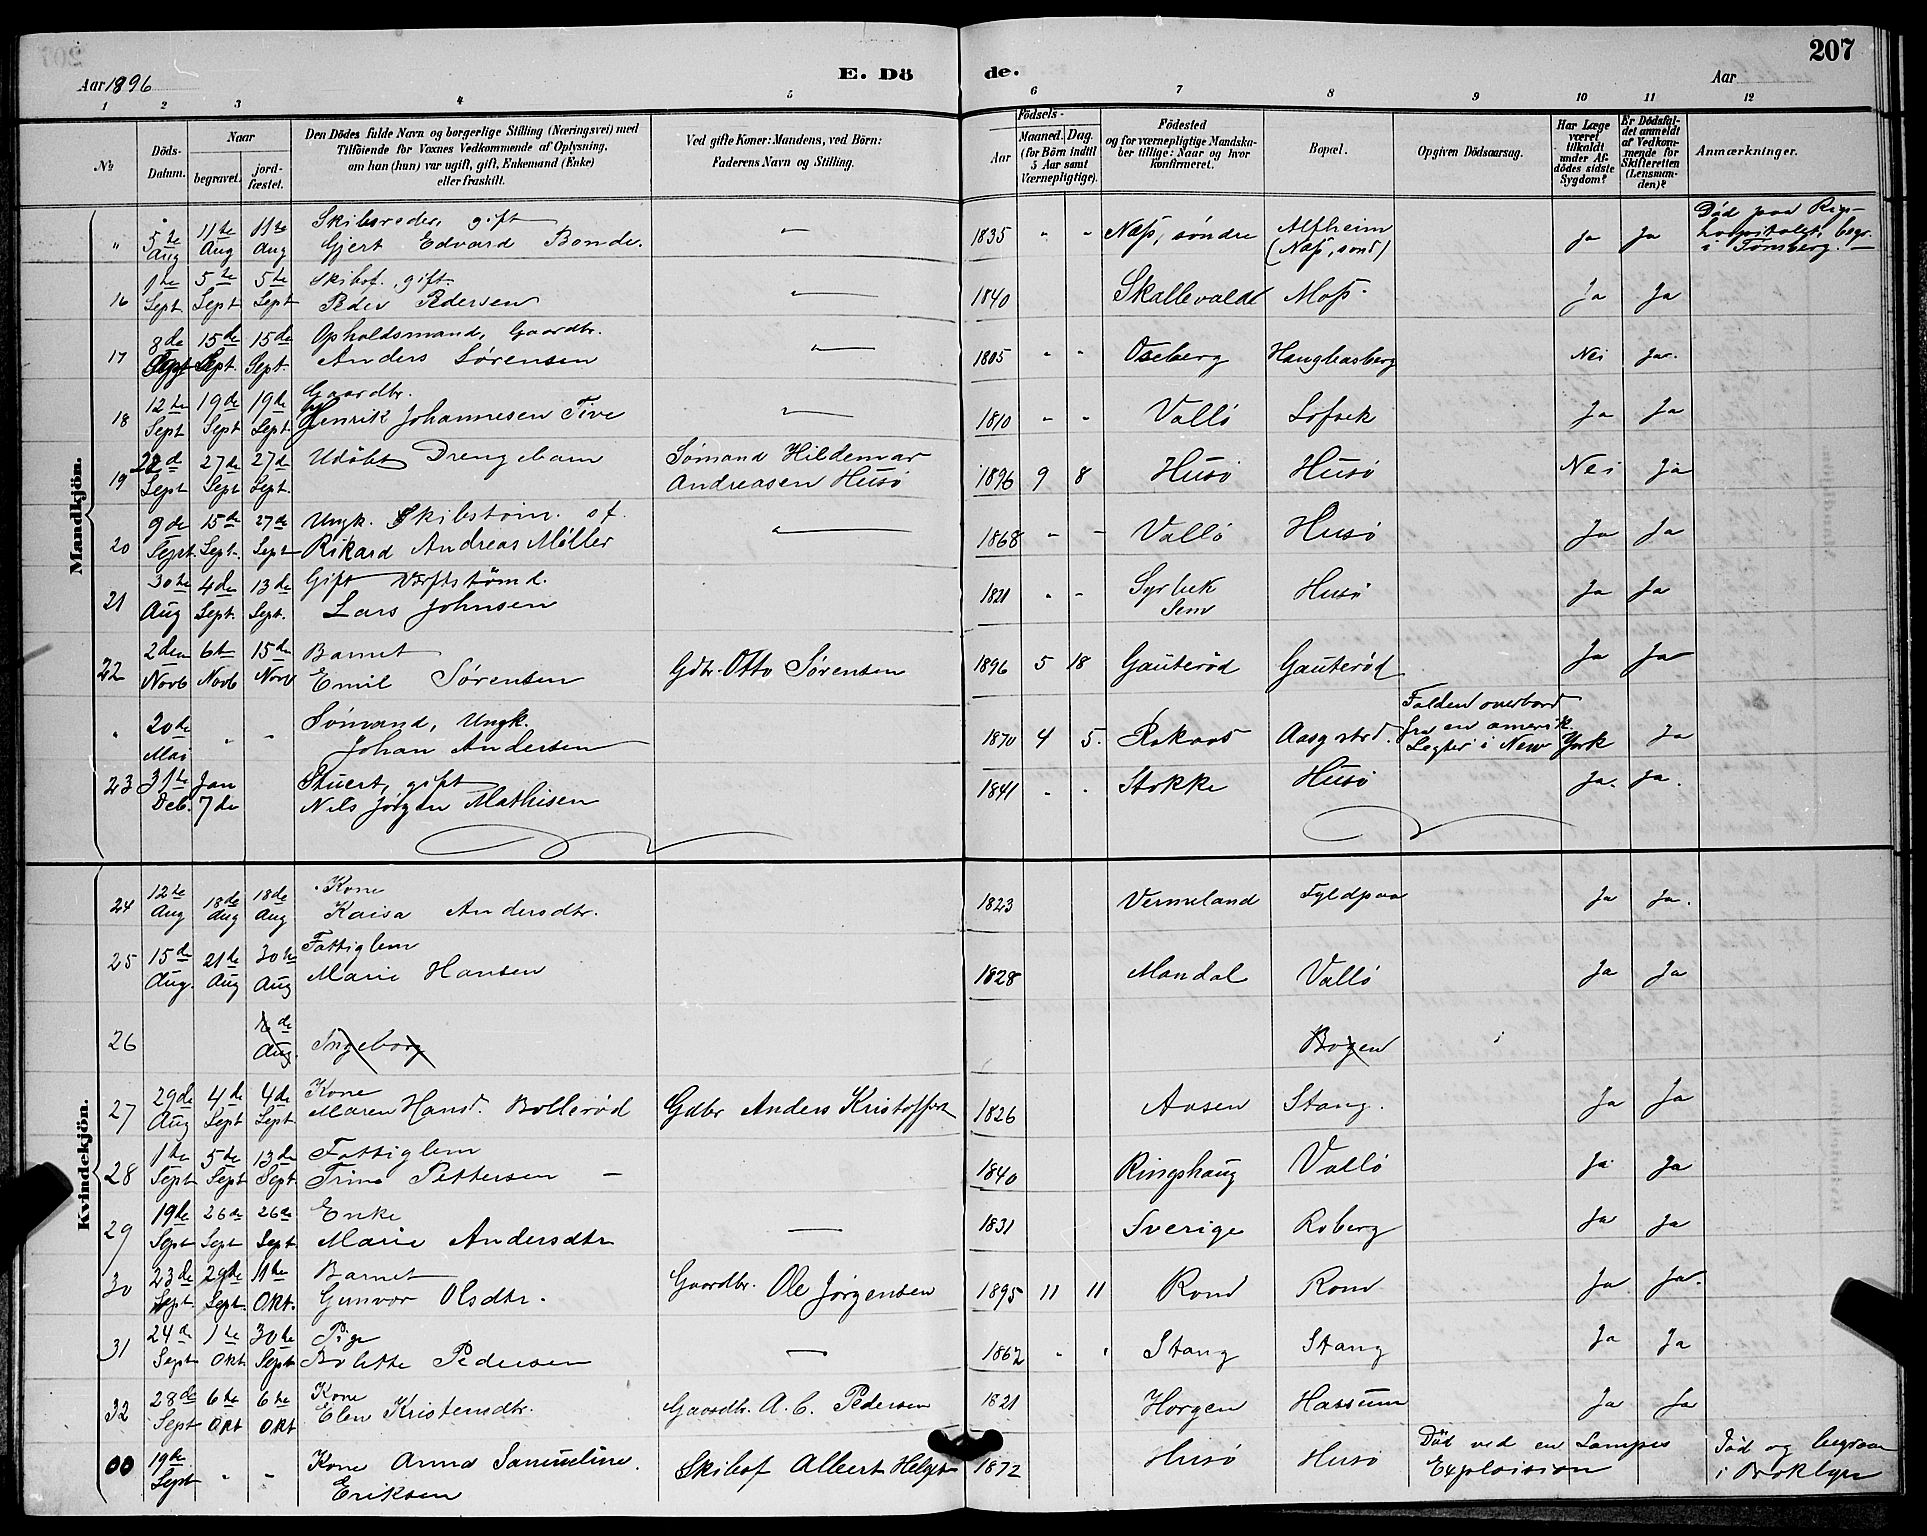 207
Aar 1896
E. Dö
de.
Aar
1 2 3 4 5 6 7 8 9 10 11 12
No
Döds-Datum.
Naar
begravet.
jord-fæstet.
Den Dödes fulde Navn og borgerlige Stilling (Næringsvei) med
Tilföiende for Voxnes Vedkommende af Oplysning,
om han (hun) var ugift, gift, Enkemand (Enke)
eller fraskilt.
Ved gifte Koner: Mandens, ved Börn:
Faderens Navn og Stilling.
Födsels-
Aar
Maaned. Dag.
(for Börn indtil
5 Aar samt
Værnepligtige).
Födested
og for værnepligtige Mandska-
ber tillige: Naar og hvor
konfirmeret.
Bopæl.
Opgiven Dödsaarsag.
Har Læge
været
tilkaldt
under Af-
dödes sidste
Sygdom?
Er Dödsfal-
det anmeldt
af Vedkom-
mende for
Skifteretten
(Lensman-
den)?
Anmærkninger.
Mandkjön.
" 5te Aug 11te Aug 11te Aug Skibsreder, gift Gjert Edvard Bonde. — 1835 " " Næss, söndre Alfheim (Næss, sönd) ja ja Död paa Rigshospitalet, begr. i Tønsberg. —
16 1te Sept 5te Sept 5te Sept Skibsf., gift. Peder Pedersen — 1840 Skallevalde Moss. Ja Ja
17 8de Sept 15de Sept. 15de Sept. Opholdsmand, Gaardbr. Anders Sørensen — 1805 " " Oseberg Haugbasberg Nei Ja.
18 12te Sept 19de Sept 19de Sept. Gaardbr. Henrik Johannesen Tive — 1810 " " Vallö Lofsek Ja Ja
19 22de Sept 27de Sept 27de Sept. Udöbt Drengebarn Sömand Hildemar Andreasen Husö 1896 9 8 Husö Husö Nei Ja
20 9de Sept. 15de Sept. 27de Sept Ungk. Skibstöm. s.f. Rikard Andreas Møller — 1868 - - Vallö Husö Ja Ja
21 30te Aug 4de Sept. 13de Sept. Gift Værftstömd. Lars Johnsen 1821 " - Syrbek Sem Husö Ja Ja
22 2den Novb 6te Novb 15de Nov Barnet Emil Sørensen Gdbr. Otto Sørensen 1896 5 18 Gauterød Gauterød Ja Ja
" 20de Mai " " Sömand, Ungk. Johan Andersen 1870 4 5. Rakaas Aasg strd. Falden overbord fra en amerik. Logter i New York Ja
23 31te Deb. Jan 7de Stuert, gift Nils Jörgen Mathisen 1841 " " Stokke Husö Ja. Ja.
Kvindekjön.
24 12te Aug 18de Aug 18de Aug Kone Kaisa Andersdtr. 1823 Vermeland Fyldpaa Ja Ja.
25 15de Aug. 21de Aug 30te Aug Fattiglem Marie Hansen 1828 Mandal Vallö Ja Ja
26 de Aug. Ingeborg Bogen
27 29de Aug 4de Sept 4de Sept Kone Maren Hansd. Bollerød Gdbr Anders Kristoffers 1826 Aasen Stang. Ja Ja
28 1te Sept 5te Sept 13de Sept Fattiglem Trine Pettersen — 1840 Ringshaug Vallö Ja Ja
29 19de Sept 26de Sept 26de Sept. Enke Marie Andersdtr — 1831 Sverige Roberg Ja Ja
30 23de Sept 29de Sept. 11te Okt. Barnet Gunvor Olsdtr. Gaardbr. Ole Jørgensen 1895 11 11 Rom Rom Ja Ja.
31 24de Sept 1te Okt 30te Sept Pige Bolette Pedersen — 1862 " " Stang Stang Ja Ja
32 28de Sept 6te Okt 6te Okt Kone Elen Kristensdtr. Gaardbr. A. C. Pedersen 1821 Horgen Hassum Ja Ja
00 19de Sept " " Kone Anna Samueline. Eriksen Skibsf Albert Helgst 1872 Husö Husö Död ved en Lampes Exploision Död og begraven i Broklyn